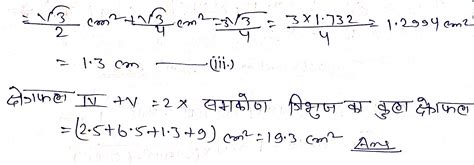 = √3/2 cm² + √3/4 cm² = 3√3/4 = 3×1.732/4 = 1.2994 cm²
= 1.3 cm —— (iii.)
क्षेत्रफल IV + V = 2 × समकोण त्रिभुज का कुल क्षेत्रफल
= (2.5+6.5+1.3+9) cm² = 19.3 cm² Ans